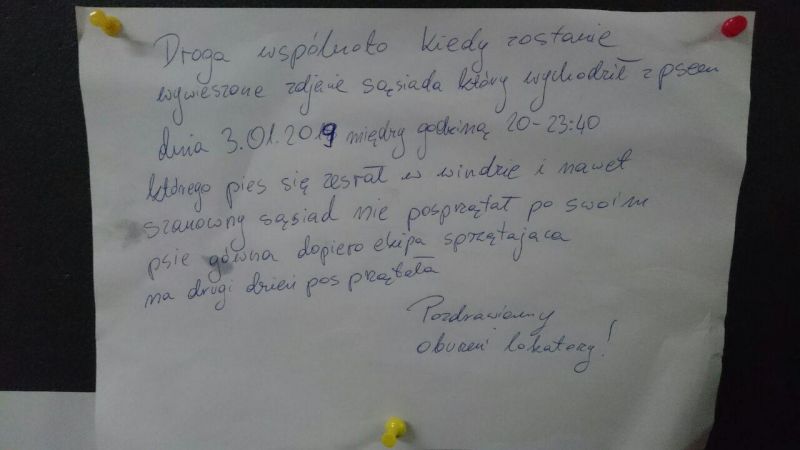 Droga wspólnoto kiedy zostanie
wywieszone zdjęcie sąsiada który wychodził z psem
dnia 3.01.2019 między godziną 20-23:40
którego pies się zesrał w windzie i nawet
szanowny sąsiad nie posprzątał po swoim
psie gówna dopiero ekipa sprzątająca
na drugi dzień posprzątała
Pozdrawiamy
oburzeni lokatorzy!